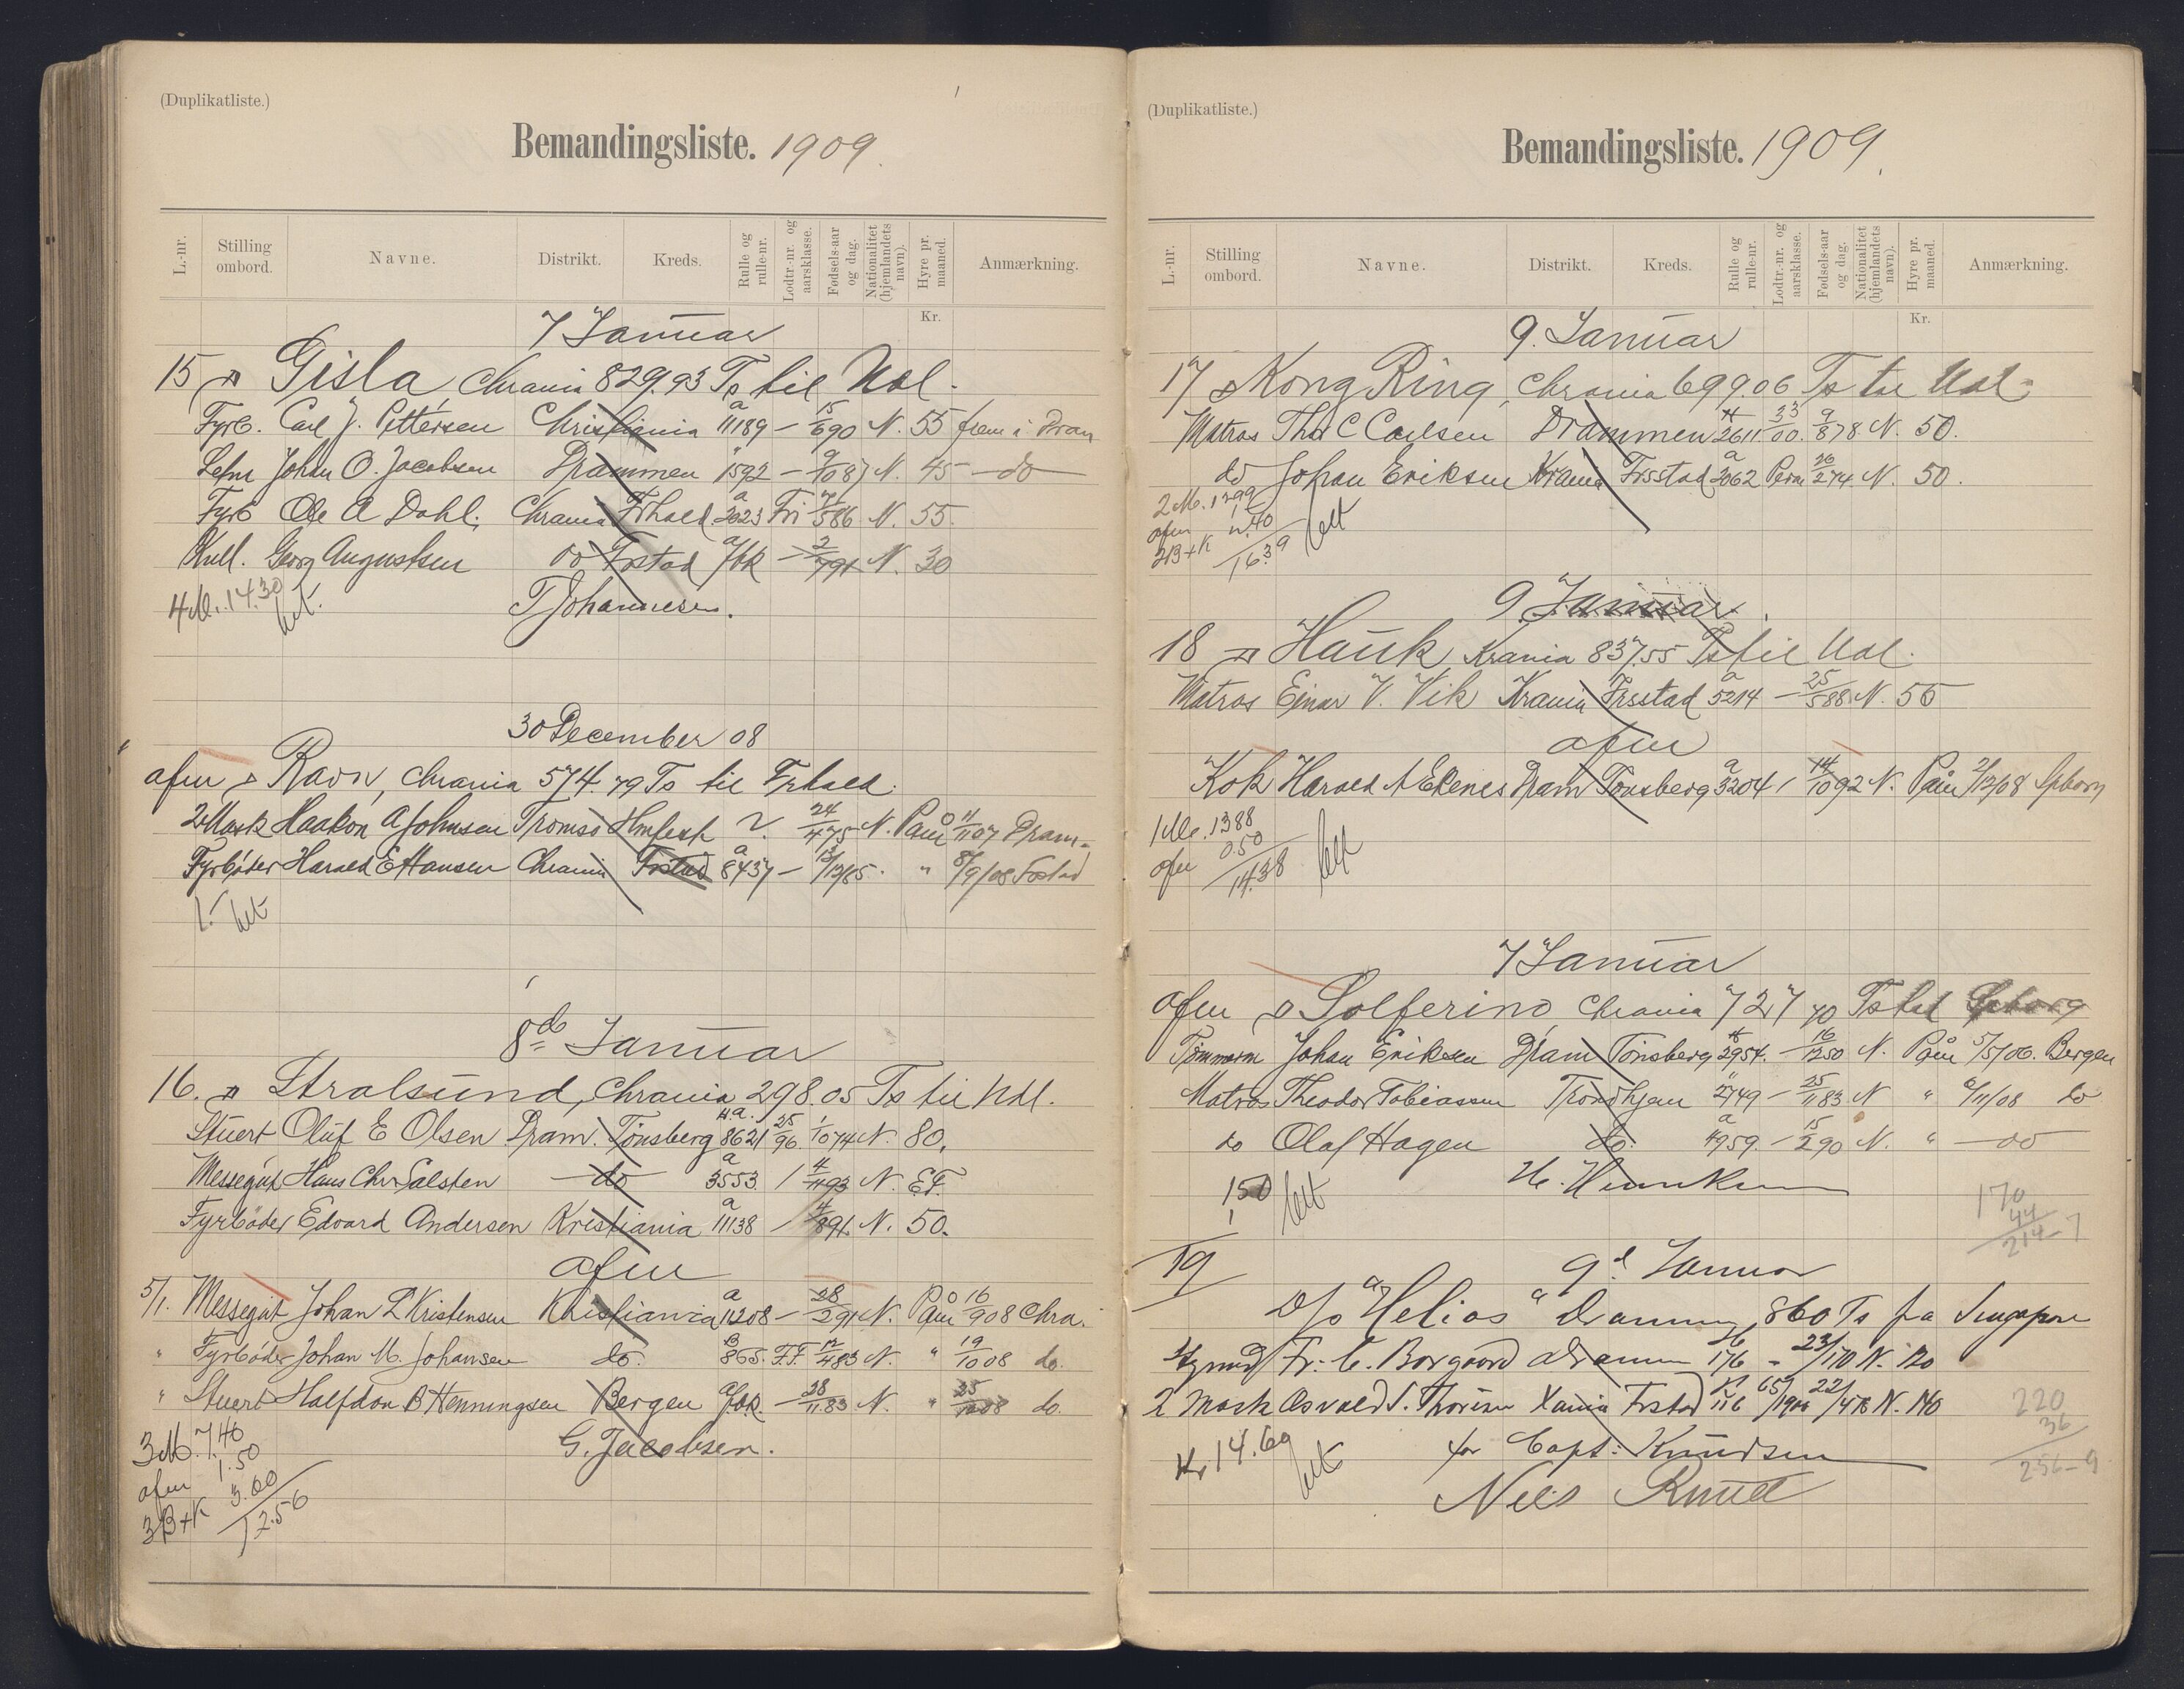 (Duplikatliste.)
Bemandingsliste. 1909.
L.-nr.
Stilling ombord.
Navne.
Distrikt.
Kreds.
Rulle og rulle-nr.
Lodtr.-nr. og aarsklasse.
Fødsels-aar og dag.
Nationalitet (hjemlandets navn).
Hyre pr. maaned.
Anmærkning.
Kr.
7 Januar
15 Gisla Chrania 829.93 Ts til Udl.
Fyrb. Carl J. Pettersen Christiania a 11189 - 15/6 90 N. 55 frem i Dram
Johan O. Jacobsen Drammen 1592 - 9/10 87 N. 45 - do
Fyrb Ole A Dahl. Chrania Frhald a 2023 Fri 7/5 86 N. 55.
Kull. Georg Augustsen do Frstad - 2/7 91 N. 30
4 M. 14.30
T Johannesen.
30 December 08
afm Ravn, Chrania 574.79 Ts til Frhald.
2 Mask Haakon A Johnsen Tromsø Hmfest 2. 24/4 75 N. Paam 11/11 07 Dram.
Fyrbøder Harald E Hansen Chrania Frstad a 8437 - 13/12/85. " 8/9/08 Frstad
1.-
8de Januar
16. Stralsund, Chrania 298.05 Ts til Udl.
Stuert Oluf E Olsen Dram. Tønsberg 4a. 8621 25/96. 1/10 74 N. 80.
Messegut Hans Chr. Salsten do a 3553. 1 4/11 93 N. E.F.
Fyrbøder Edvard Andersen Kristiania a 11138 / 4/8 91. N. 50.
afm
5/1. Messegut Johan L Kristensen Khistiania a 11208 - 28/2 91 N. Paam 16/9 08 Chra.
" Fyrbøder Johan M. Johansen do. B 865. F.F. 12/4 83 N. " 19/10 08 do.
" Stuert Halfdan B Henningsen Bergen - 28/11 83 N. " 25/12 08 do.
3 M. 7.46
afm 1.50
3B+K 3.60
12.56
G. Jacobsen.
(Duplikatliste.)
Bemandingsliste. 1909.
L.-nr.
Stilling ombord.
Navne.
Distrikt.
Kreds.
Rulle og rulle-nr.
Lodtr.-nr. og aarsklasse.
Fødsels-aar og dag.
Nationalitet (hjemlandets navn).
Hyre pr. maaned.
Anmærkning.
Kr.
9. Januar
17 Kong Ring, Chrania 699.06 Ts til Udl.
Matros Thor C Carlsen Drammen 2611 33/00. 9/8 78 N. 50.
do Johan Eriksen Krania Frsstad a 2062 Perm 26/2 74 N. 50.
2 M. 13.99
afm 2.40
2B+K 16.39
9. Januar.
18 Hauk Krania 837.55 Ts til Udl.
Matros Ejnar V. Vik Krania Frsstad a 5214 - 25/5 88 N. 55
afm
Kok Harald A Ekenes Dram Tønsberg a 3204 / 14/10 92 N. Paam 2/12/08 Spborg
1 M. 13.88
afm 0.50
14.38
7 Januar
afm Solferino Chrania 727.70 Ts til Spborg
Tømmerm Johan Eriksen Dram Tønsberg 2954. - 16/12 50 N. Paam 5/5/06. Bergen
Matros Theodor Tobiassen Trondhjem 2749 - 25/11 83 N " 6/11/08 do
do Olaf Hagen do. a 4959. - 15/2 90 N. " - do
1.50
170
44
214-7
19
9d Januar
D/s "Helios" Drammen, 860 Ts fra Singapore
Fr. C. Borgaard Drammen 176 - 23/1 70 N. 120
2 Mask Osvald S. Thorsen Xania Frstad 116 65/1900 22/4 78 N. 140
Kr 14.69
for Capt: Knudsen
Niels Knud
220
36
256-9